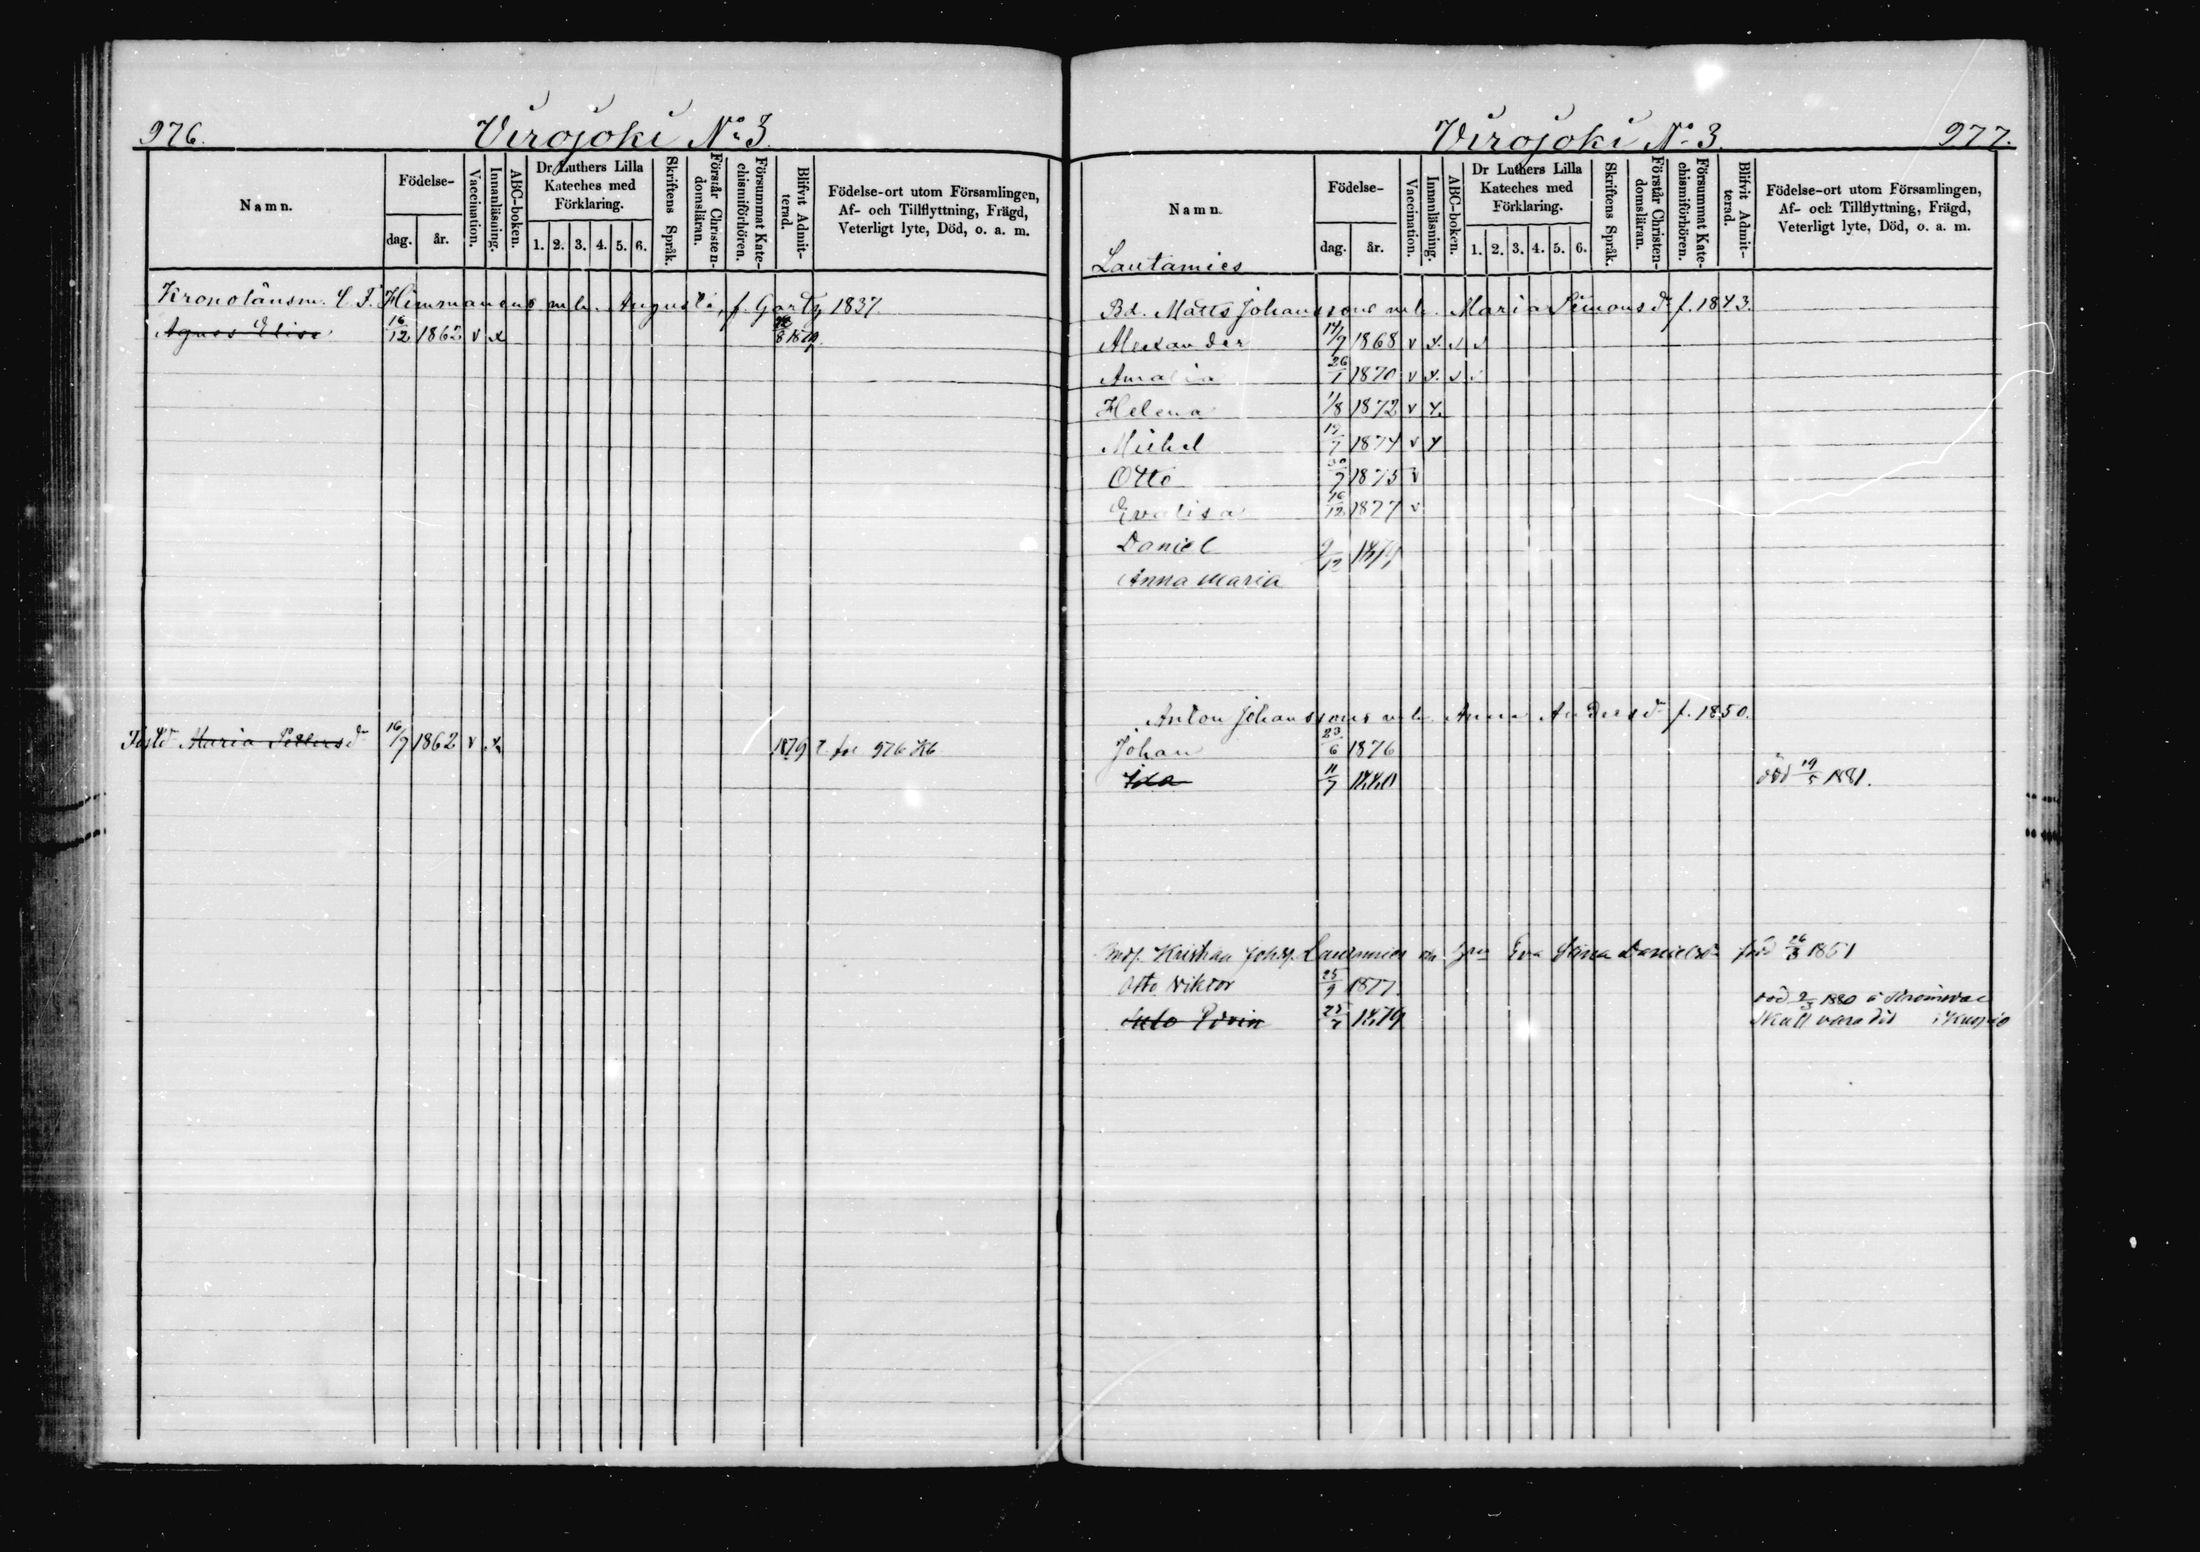 976.
Virojoki No 3.
Namn.
Födelse-
dag.
år.
Vaccination.
Innanläsning.
ABC-boken.
Dr Luthers Lilla
Kateches med
Förklaring.
1. 2. 3. 4. 5. 6.
Skriftens Språk.
Förstår Christen-
domsläran.
Försummat Kate-
chismiförhören.
Blifvit Admit-
terad.
Födelse-ort utom Församlingen,
Af- och Tillflyttning, Frägd,
Veterligt lyte, Död, o. a. m.
Kronolänsm. Himmanens m. h. Augusta, f. Gartz 1837.
Agnes Elise 16/12 1862 v x
Maria Pettersdr 16/7 1862 v x 1879 976
Virojoki No 3.
977.
Namn.
Födelse-
dag.
år.
Vaccination.
Innanläsning.
ABC-boken.
Dr Luthers Lilla
Kateches med
Förklaring.
1. 2. 3. 4. 5. 6.
Skriftens Språk.
Förstår Christen-
domsläran.
Försummat Kate-
chismiförhören.
Blifvit Admit-
terad.
Födelse-ort utom Församlingen,
Af- och Tillflyttning, Frägd,
Veterligt lyte, Död, o. a. m.
Lautamies
Bd. Matts Johanssons m. h. Maria Simonsdr f. 1843.
Alexander 1868 v x v v
Amalia 26/1 1870 v x v
Helena 1/8 1872 v x
Michel 1874 v x
Otto 30/7 1875 v
Evalisa 16/12 1877 v
Daniel 9/12 1879
Anna Maria
Anton Johanssons m. h. Anna Andersdr f. 1850.
Johan 23/6 1876
Ida 11/7 1880 död 19/5 1881.
Kristian Johsp. Lautamies Eva Stina Danielsdr född 26/3 1851
Otto Viktor 25/9 1877
död 2/3 1880
Edvin 1879 skall vara död i Kuopio